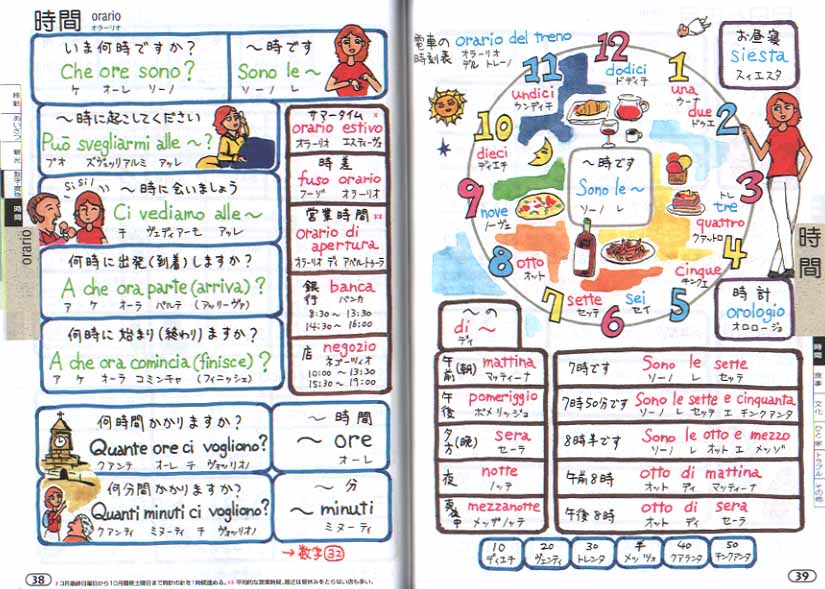 時間 orario
オラーリオ
いま何時ですか?
Che ore sono?
ケ オーレ ソーノ
～時です
Sono le ～
ソーノ レ
～時に起こしてください
Può svegliarmi alle ～?
プオ ズヴェッリアルミ アッレ
Sì sì!
～時に会いましょう
Ci vediamo alle～
チ ヴェディアーモ アッレ
何時に出発(到着)しますか?
A che ora parte (arriva)?
ア ケ オーラ パルテ (アッリーヴァ)
何時に始まり(終わり)ますか?
A che ora comincia (finisce)?
ア ケ オーラ コミンチャ (フィニッシェ)
サマータイム ※
orario estivo
オラーリオ エスティーヴォ
時差
fuso orario
フーゾ オラーリオ
営業時間 ※※
orario di
apertura
オラーリオ ディ アペルトゥーラ
銀行 banca
バンカ
8:30～13:30
14:30～16:00
店 negozio
ネゴーツィオ
10:00～13:30
15:30～19:00
何時間かかりますか?
Quante ore ci vogliono?
クアンテ オーレ チ ヴォッリオノ
～時間
～ ore
オーレ
何分間かかりますか?
Quanti minuti ci vogliono?
クアンティ ミヌーティ チ ヴォッリオノ
～分
～ minuti
ミヌーティ
→ 数字 33
38
※3月最終日曜日から10月最終土曜日まで時計の針を1時間進める。 ※※平均的な営業時間。最近は昼休みをとらない店も多い。
移動
あいさつ
観光
時間
orario
電車の時刻表 orario del treno
オラーリオ
デル トレーノ
お昼寝
siesta
スィエスタ
12
dodici
ドディチ
1
una
ウーナ
2
due
ドゥエ
3
tre
トレ
4
quattro
クァットロ
5
cinque
チンクエ
6
sei
セイ
7
sette
セッテ
8
otto
オット
9
nove
ノーヴェ
10
dieci
ディエチ
11
undici
ウンディチ
～時です
Sono le ～
ソーノ レ
時計
orologio
オロロージョ
～の
di ～
ディ
午前(朝) mattina
マッティーナ
午後 pomeriggio
ポメリッジョ
夕方(晩) sera
セーラ
夜 notte
ノッテ
真夜中 mezzanotte
メッザノッテ
7時です Sono le sette
ソーノ レ セッテ
7時50分です Sono le sette e cinquanta
ソーノ レ セッテ エ チンクアンタ
8時半です Sono le otto e mezzo
ソーノ レ オット エ メッゾ
午前8時 otto di mattina
オット ディ マッティーナ
午後8時 otto di sera
オット ディ セーラ
10
ディエチ
20
ヴェンティ
30
トレンタ
半
メッツォ
40
クアランタ
50
チンクアンタ
39
時間
時間
食事
文化
ひと・家
トラブル
その他